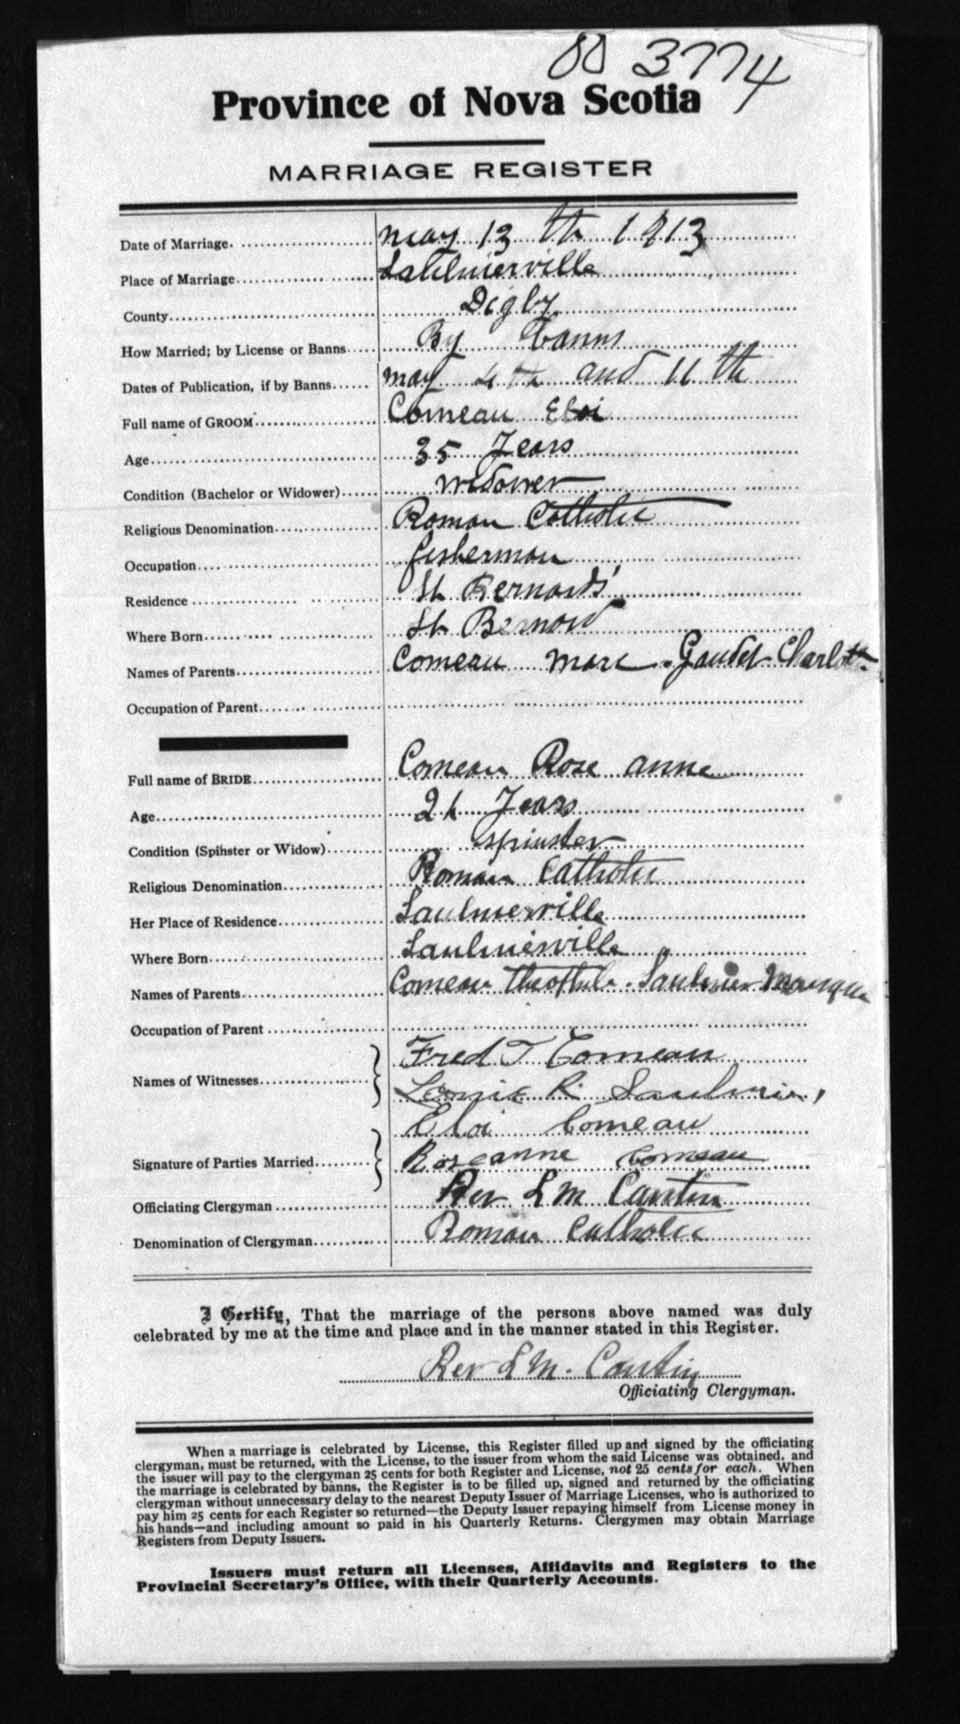 3774
Province of Nova Scotia
MARRIAGE REGISTER
Date of Marriage. may 13 th 1913
Place of Marriage Saulnierville
County Digby
How Married; by License or Banns By banns
Dates of Publication, if by Banns may 4th and 11 th
Full name of GROOM Comeau Eloi
Age 35 Years
Condition (Bachelor or Widower) widower
Religious Denomination Roman Catholic
Occupation fisherman
Residence St Bernards'
Where Born St Bernard
Names of Parents Comeau Marc - Gaudet Charlotte
Occupation of Parent
Full name of BRIDE Comeau Rose anne
Age 21 Years
Condition (Spinster or Widow) spinster
Religious Denomination Roman Catholic
Her Place of Residence Saulnierville
Where Born Saulnierville
Names of Parents Comeau - Saulnier
Occupation of Parent
Names of Witnesses Fred T Comeau
Leonie R. Saulnier,
Eloi Comeau
Signature of Parties Married Roseanne Comeau
Officiating Clergyman Rev L M Cantin
Denomination of Clergyman Roman Catholic
I Certify, That the marriage of the persons above named was duly
celebrated by me at the time and place and in the manner stated in this Register.
Rev L M. Cantin
Officiating Clergyman.
When a marriage is celebrated by License, this Register filled up and signed by the officiating
clergyman, must be returned, with the License, to the issuer from whom the said License was obtained, and
the issuer will pay to the clergyman 25 cents for both Register and License, not 25 cents for each. When
the marriage is celebrated by banns, the Register is to be filled up, signed and returned by the officiating
clergyman without unnecessary delay to the nearest Deputy Issuer of Marriage Licenses, who is authorized to
pay him 25 cents for each Register so returned—the Deputy Issuer repaying himself from License money in
his hands—and including amount so paid in his Quarterly Returns. Clergymen may obtain Marriage
Registers from Deputy Issuers.
Issuers must return all Licenses, Affidavits and Registers to the
Provincial Secretary's Office, with their Quarterly Accounts.